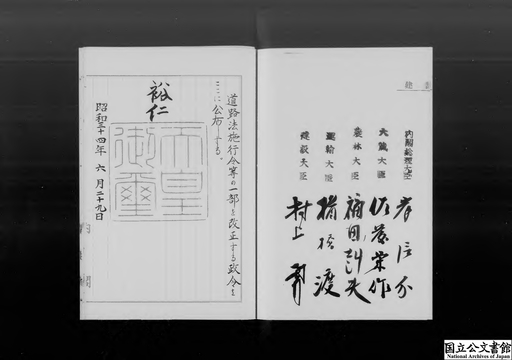 内閣総理大臣 岸信介
大藏大臣 佐藤榮作
農林大臣 福田赳夫
運輸大臣 楢橋渡
建設大臣 村上勇
道路法施行令等の一部を改正する政令を
ここに公布する。
裕仁
天皇
御璽
昭和三十四年 六月二十九日
国立公文書館
National Archives of Japan